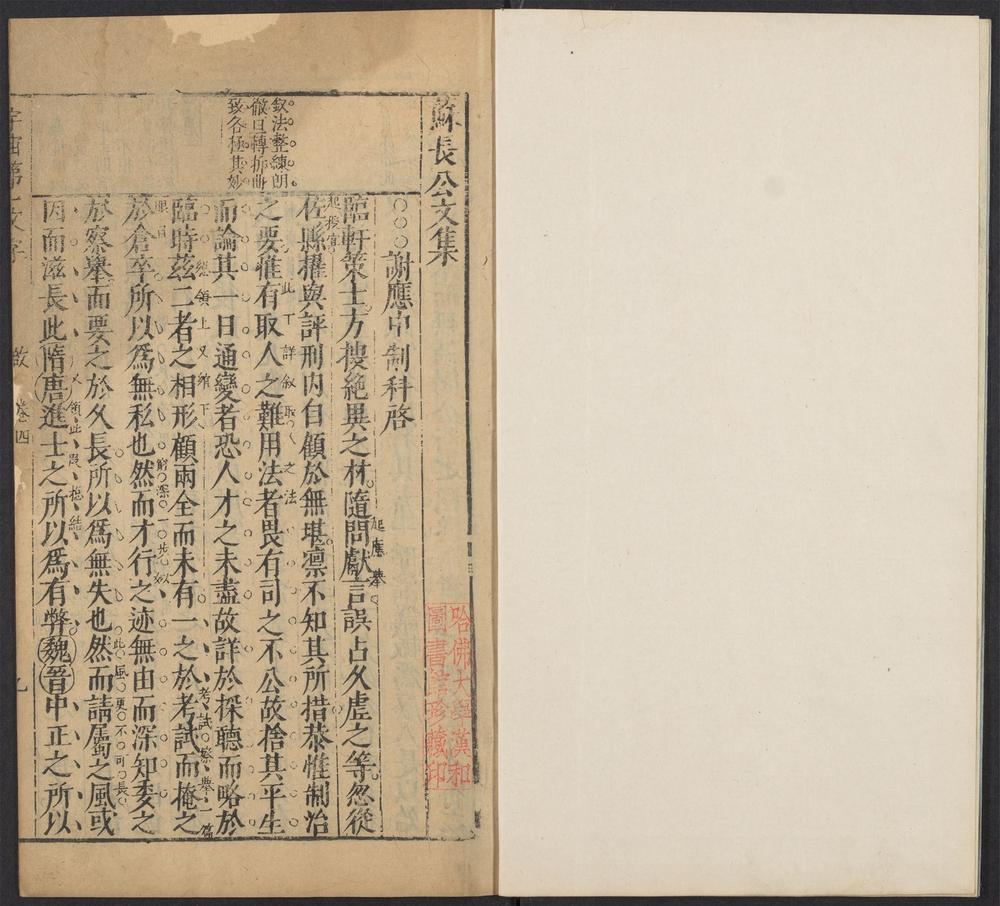 蘇長公文集
謝應中制科啓
臨軒策士方摟絶異之材隨問獻言誤占久虗之等忽從
佐縣擢與評刑内自顧於無堪凛不知其所措恭惟制治
之要惟有取人之難用法者畏有司之不公故捨其平生
而論其一日通變者恐人才之未盡故詳於採聽而略於
臨時兹二者之相形顧兩全而未有一之於考試而掩之
於倉卒所以爲無私也然而才行之迹無由而深知委之
於察舉而要之於久長所以爲無失也然而請屬之風或
因而滋長此隋唐進士之所以爲有弊魏晋中正之所以
叙法整練朗
徹且轉折曲
致各極其妙
起應舉
起授官
此下詳叙取人之法
總領上又綰下
考試察舉一篇
眼目
此風更不可長
卷四
哈佛大學漢和
圖書館珍藏印